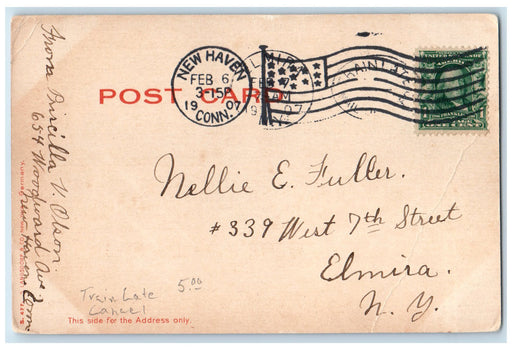 From Priscilla V. Olson
654 Woodward Ave
New Haven Conn
POST CARD
NEW HAVEN
FEB 6
3-15P
1907
CONN.
Nellie E. Fuller.
#339 West 7th Street
Elmira.
N. Y.
Train Late 5.00
Cancel
This side for the Address only.